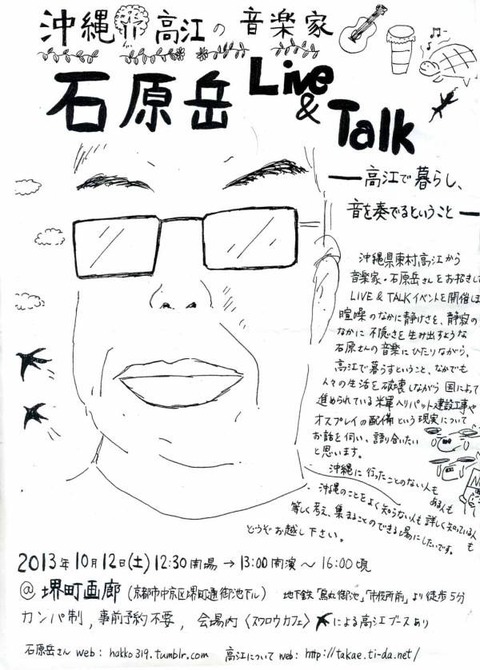 沖縄 高江の 音楽家
石原岳 Live & Talk
― 高江で暮らし、
音を奏でるということ ―
沖縄県東村高江から
音楽家・石原岳さんをお招きして
LIVE & TALKイベントを開催しま
喧噪のなかに静けさを、静寂の
なかに 不穏さを生み出すような
石原さんの音楽にひたりながら、
高江で暮らすということ、なかでも
人々の生活を破壊しながら 国によって
進められている米軍ヘリパット建設工事や
オスプレイの配備という現実について
お話を伺い、語り合いたい
と思います。
沖縄に行ったことのない人も
ある人も
沖縄のことをよく知らない人も 詳しく知っている人も
等しく考え、集まることのできる場にしたいです。
どうぞお越し下さい。
2013年10月12日(土) 12:30開場 → 13:00開演 〜 16:00頃
@ 堺町画廊 (京都市中京区堺町通御池下ル) 地下鉄「烏丸御池」「市役所前」より徒歩5分
カンパ制, 事前予約不要, 会場内〈スワロウカフェ〉による高江ブースあり
石原岳さん web: hokko319.tumblr.com 高江について web: http://takae.ti-da.net/